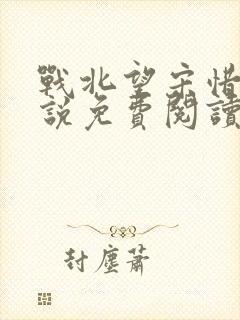 戰北望宋惜
說免費閱讀
封塵蕭